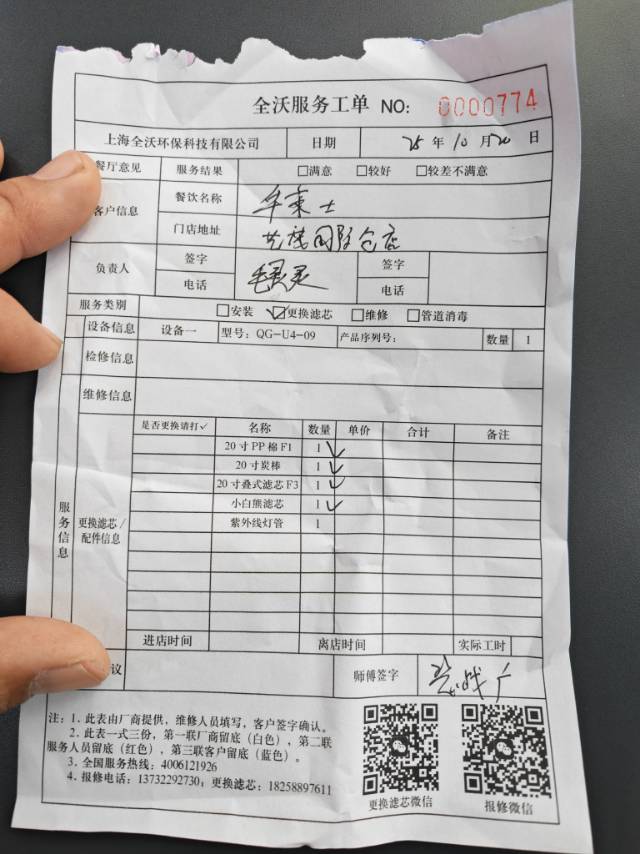 全沃服务工单 NO: 0000774
上海全沃环保科技有限公司 日期 25 年 10 月 20 日
餐厅意见 服务结果 □满意 □较好 □较差不满意
客户信息 餐饮名称 牟東士
门店地址 国际仓店
负责人 签字 毛灵灵 签字
电话 电话
服务类别 □安装 ☑更换滤芯 □维修 □管道消毒
设备信息 设备一 型号: QG-U4-09 产品序列号: 数量 1
检修信息
维修信息
服务信息
更换滤芯/配件信息
是否更换请打✓ 名称 数量 单价 合计 备注
20寸PP棉F1 1 ✓
20寸炭棒 1 ✓
20寸叠式滤芯F3 1 ✓
小白熊滤芯 1 ✓
紫外线灯管 1
进店时间 离店时间 实际工时
议 师傅签字
注: 1. 此表由厂商提供, 维修人员填写, 客户签字确认。
2. 此表一式三份, 第一联厂商留底(白色), 第二联
服务人员留底(红色), 第三联客户留底(蓝色)。
3. 全国服务热线: 4006121926
4. 报修电话: 13732292730; 更换滤芯: 18258897611
更换滤芯微信 报修微信